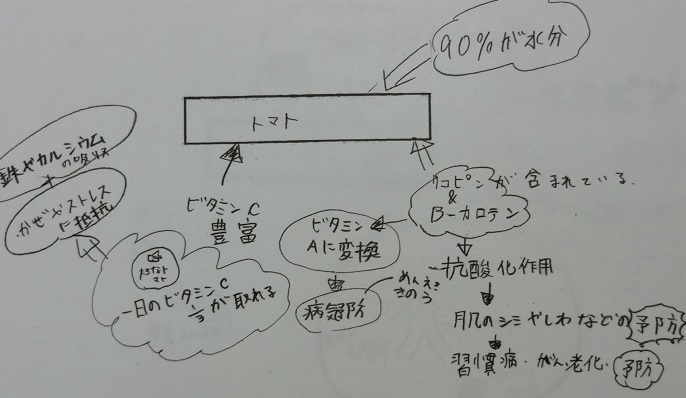 90%が水分
トマト
鉄やカルシウム
の吸収
+
かぜやストレス
に抵抗
ビタミンC
豊富
リコピンが含まれている
&
B-カロテン
ビタミン
Aに変換
大きな
トマト
一日のビタミンC
1/3が取れる
めんえき
きのう
病予防
抗酸化作用
肌のシミやしわなどの予防
習慣病・がん老化・予防